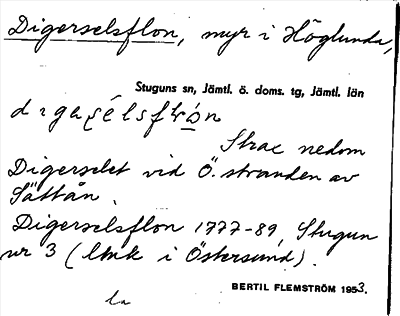 Digerselsflon, myr i Höglunda,
Stuguns sn, Jämtl. ö. doms. tg, Jämtl. län
Strax nedom
Digerselet vid Ö. stranden av
Sättån.
Digerselsflon 1777-89, Stugun
nr 3 (Lmk i Östersund).
BERTIL FLEMSTRÖM 1953.